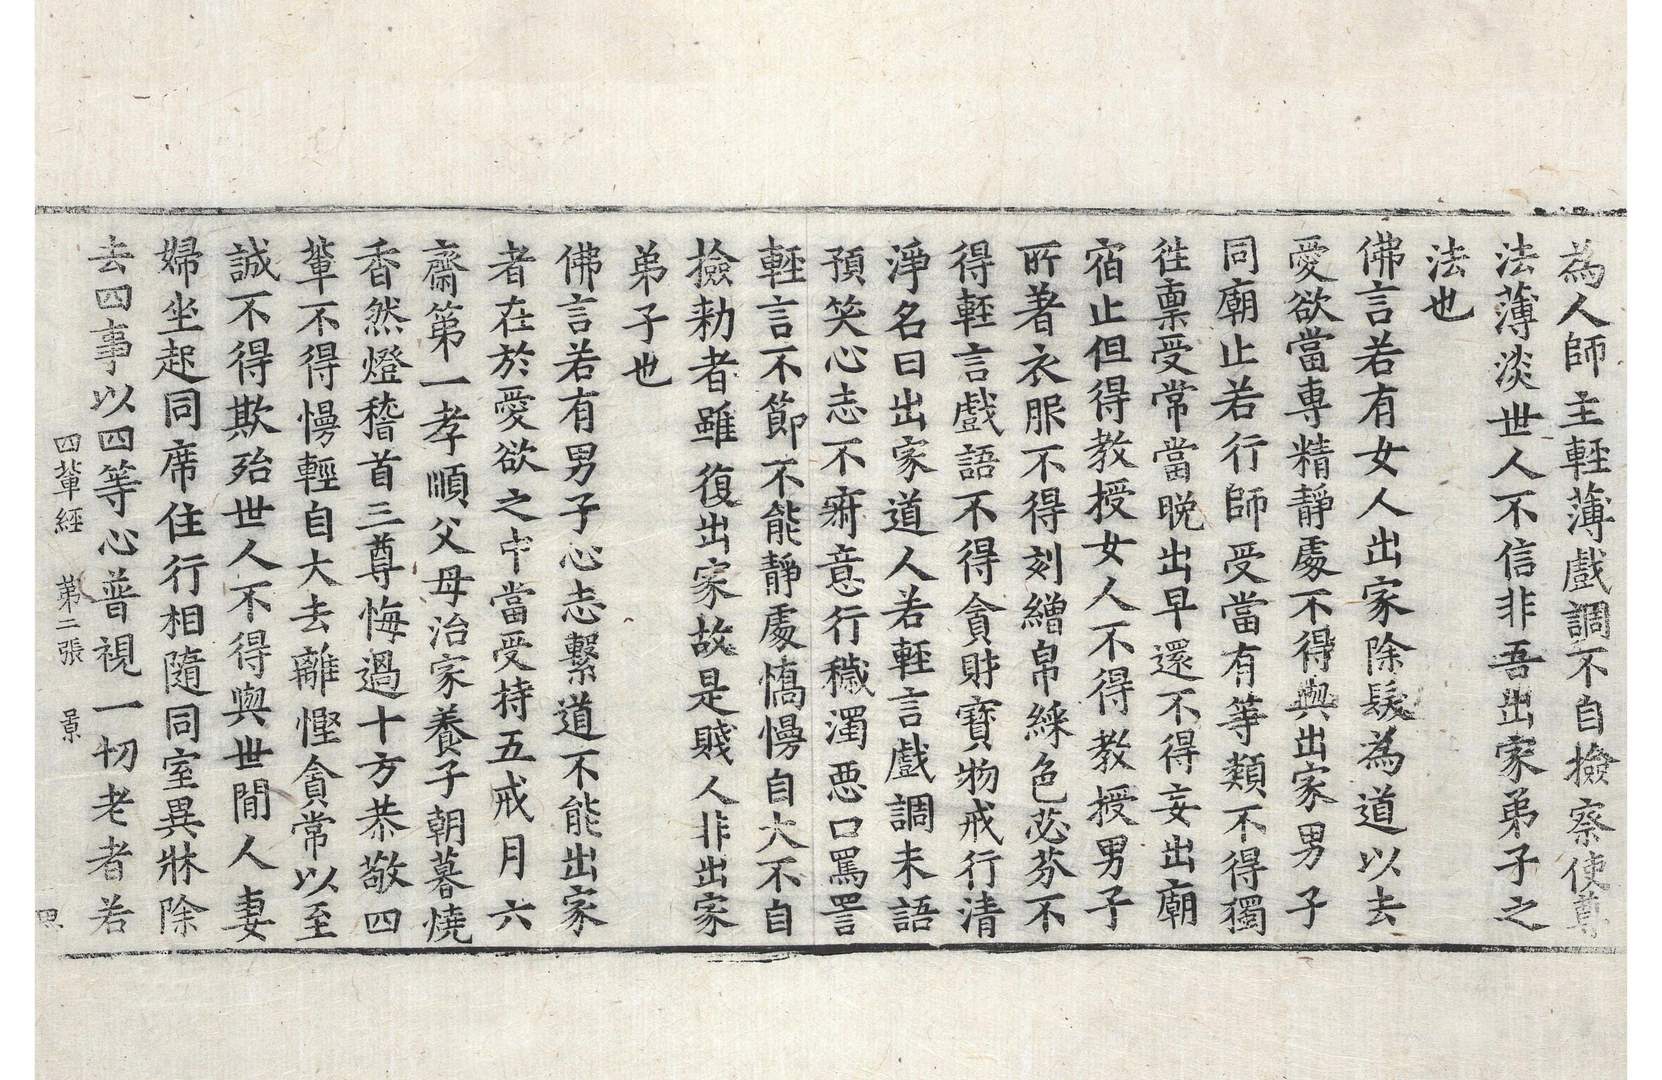 為人師主輕薄戲調不自撿察使尊
法薄淡世人不信非吾出家弟子之
法也
佛言若有女人出家除髮為道以去
愛欲當專精靜處不得與出家男子
同廟止若行師受當有等類不得獨
往稟受常當晚出早還不得妄出廟
宿止但得教授女人不得教授男子
所著衣服不得刻繒帛綵色苾芬不
得輕言戲語不得貪財寶物戒行清
淨名曰出家道人若輕言戲調未語
預笑心志不齋意行穢濁惡口罵詈
輕言不節不能靜處憍慢自大不自
撿勑者雖復出家故是賤人非出家
弟子也
佛言若有男子心志繫道不能出家
者在於愛欲之中當受持五戒月六
齋第一孝順父母治家養子朝暮燒
香然燈稽首三尊悔過十方恭敬四
輩不得慢輕自大去離慳貪常以至
誠不得欺殆世人不得與世閒人妻
婦坐起同席住行相隨同室異牀除
去四事以四等心普視一切老者若
四輩經　第二張　景